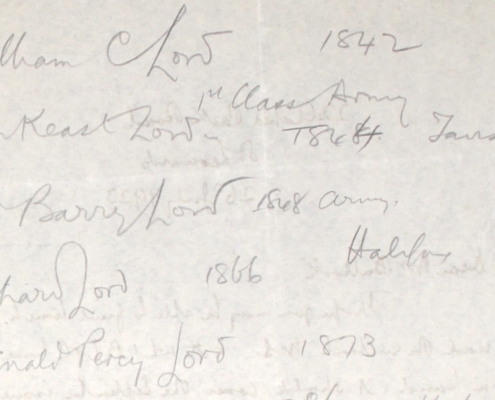 lliam C Lord 1842
1st Class Army
Keast Lord 1844
Barry Lord 1848 army.
Halifax
hard Lord 1866
nald Percy Lord 1873